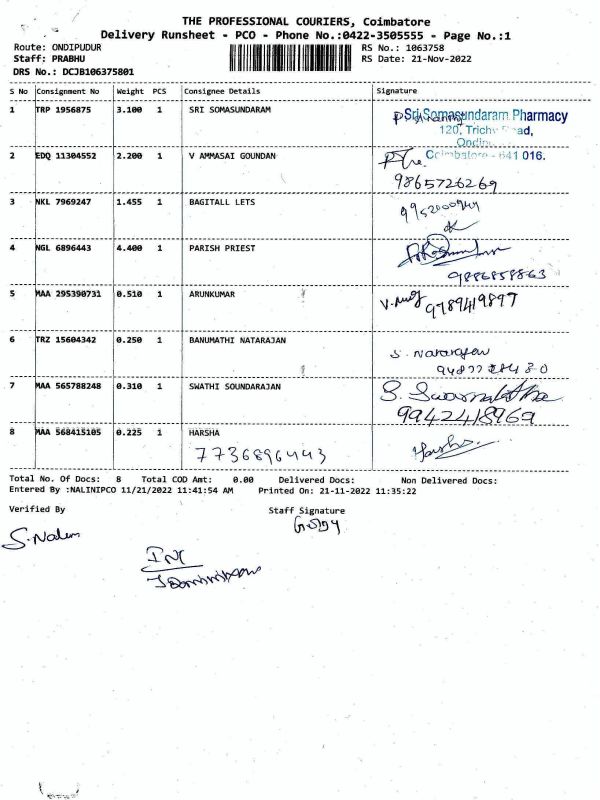 THE PROFESSIONAL COURIERS, Coimbatore
Delivery Runsheet - PCO - Phone No.:0422-3505555 - Page No.:1
Route: ONDIPUDUR RS No.: 1063758
Staff: PRABHU RS Date: 21-Nov-2022
DRS No.: DCJB106375801
S No Consignment No Weight PCS Consignee Details Signature
1 TRP 1956875 3.100 1 SRI SOMASUNDARAM
Sri Somasundaram Pharmacy
120, Trichy
Coimbatore - 641 016.
2 EDQ 11304552 2.200 1 V AMMASAI GOUNDAN
9865726269
3 NKL 7969247 1.455 1 BAGITALL LETS
4 NGL 6896443 4.400 1 PARISH PRIEST
9886858863
5 MAA 295390731 0.510 1 ARUNKUMAR
9789419897
6 TRZ 15604342 0.250 1 BANUMATHI NATARAJAN
S. Natarajan
7 MAA 565788248 0.310 1 SWATHI SOUNDARAJAN
9942418969
8 MAA 568415105 0.225 1 HARSHA Harsha
7736896443
Total No. Of Docs: 8 Total COD Amt: 0.00 Delivered Docs: Non Delivered Docs:
Entered By :NALINIPCO 11/21/2022 11:41:54 AM Printed On: 21-11-2022 11:35:22
Verified By Staff Signature
S. Nalin